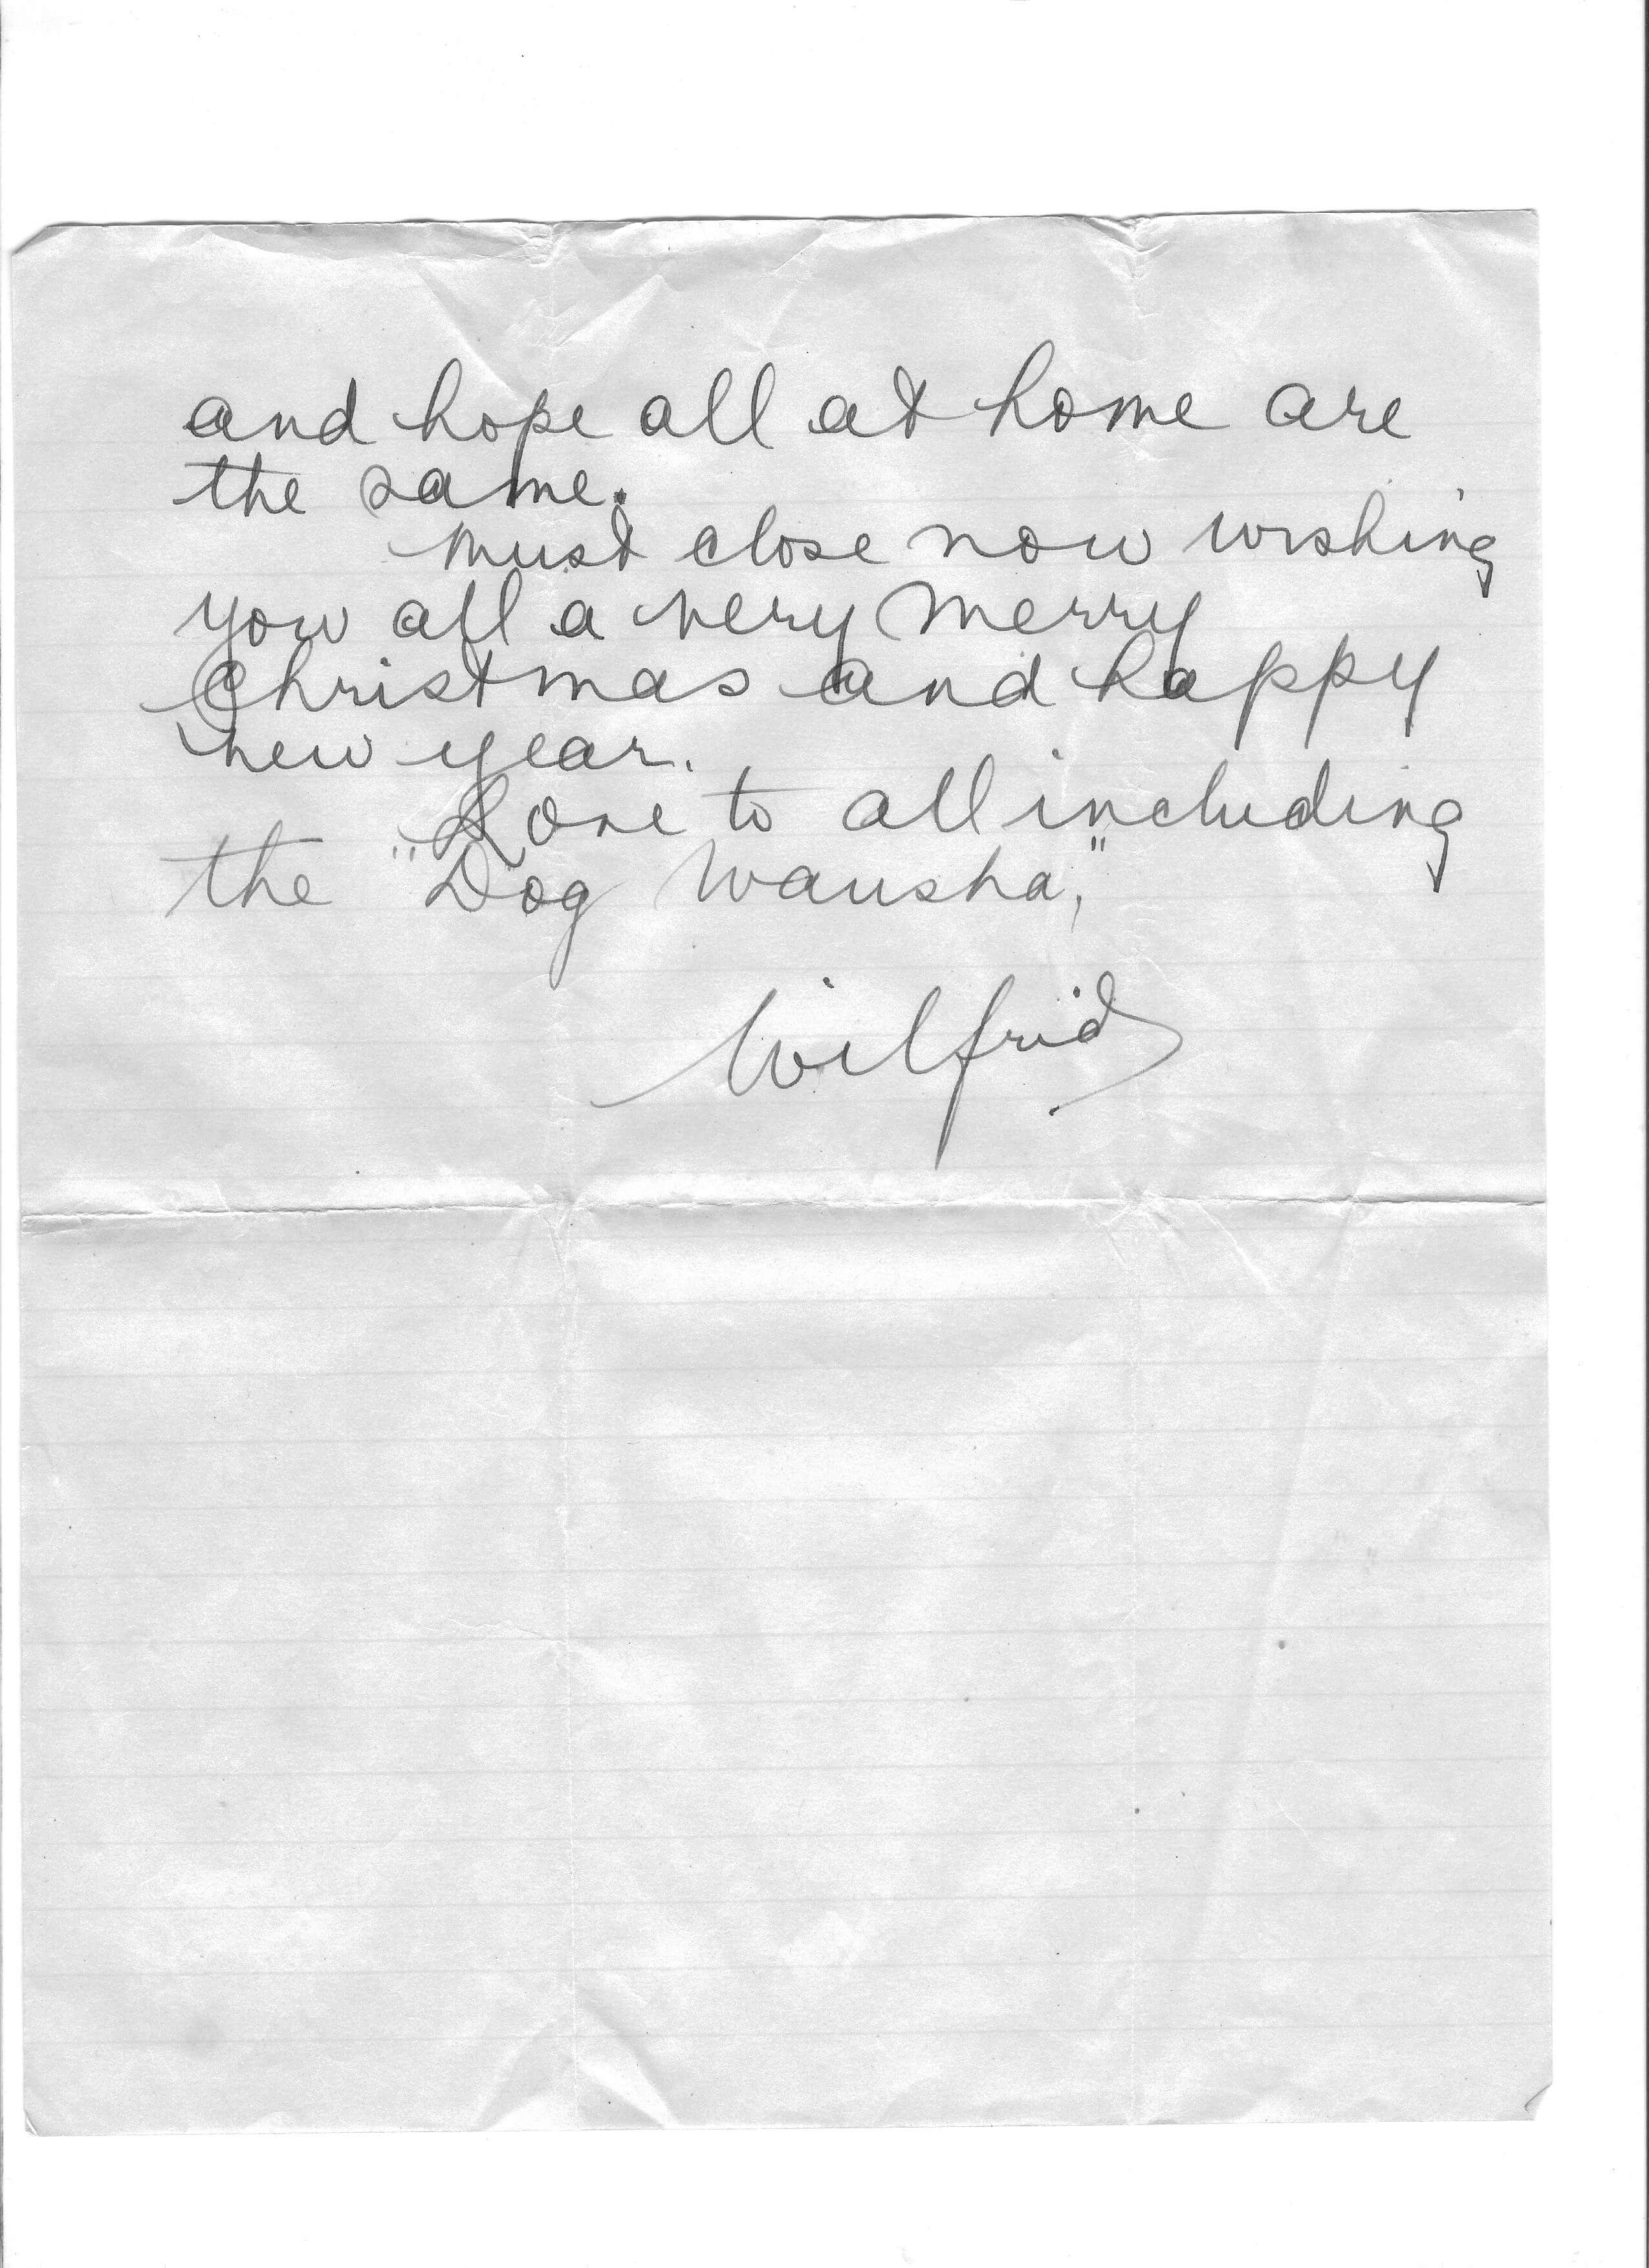 and hope all at home are
the same.
must close now wishing
you all a very merry
Christmas and happy
new year.
Love to all including
the "Dog Wausha,"
Wilfrid